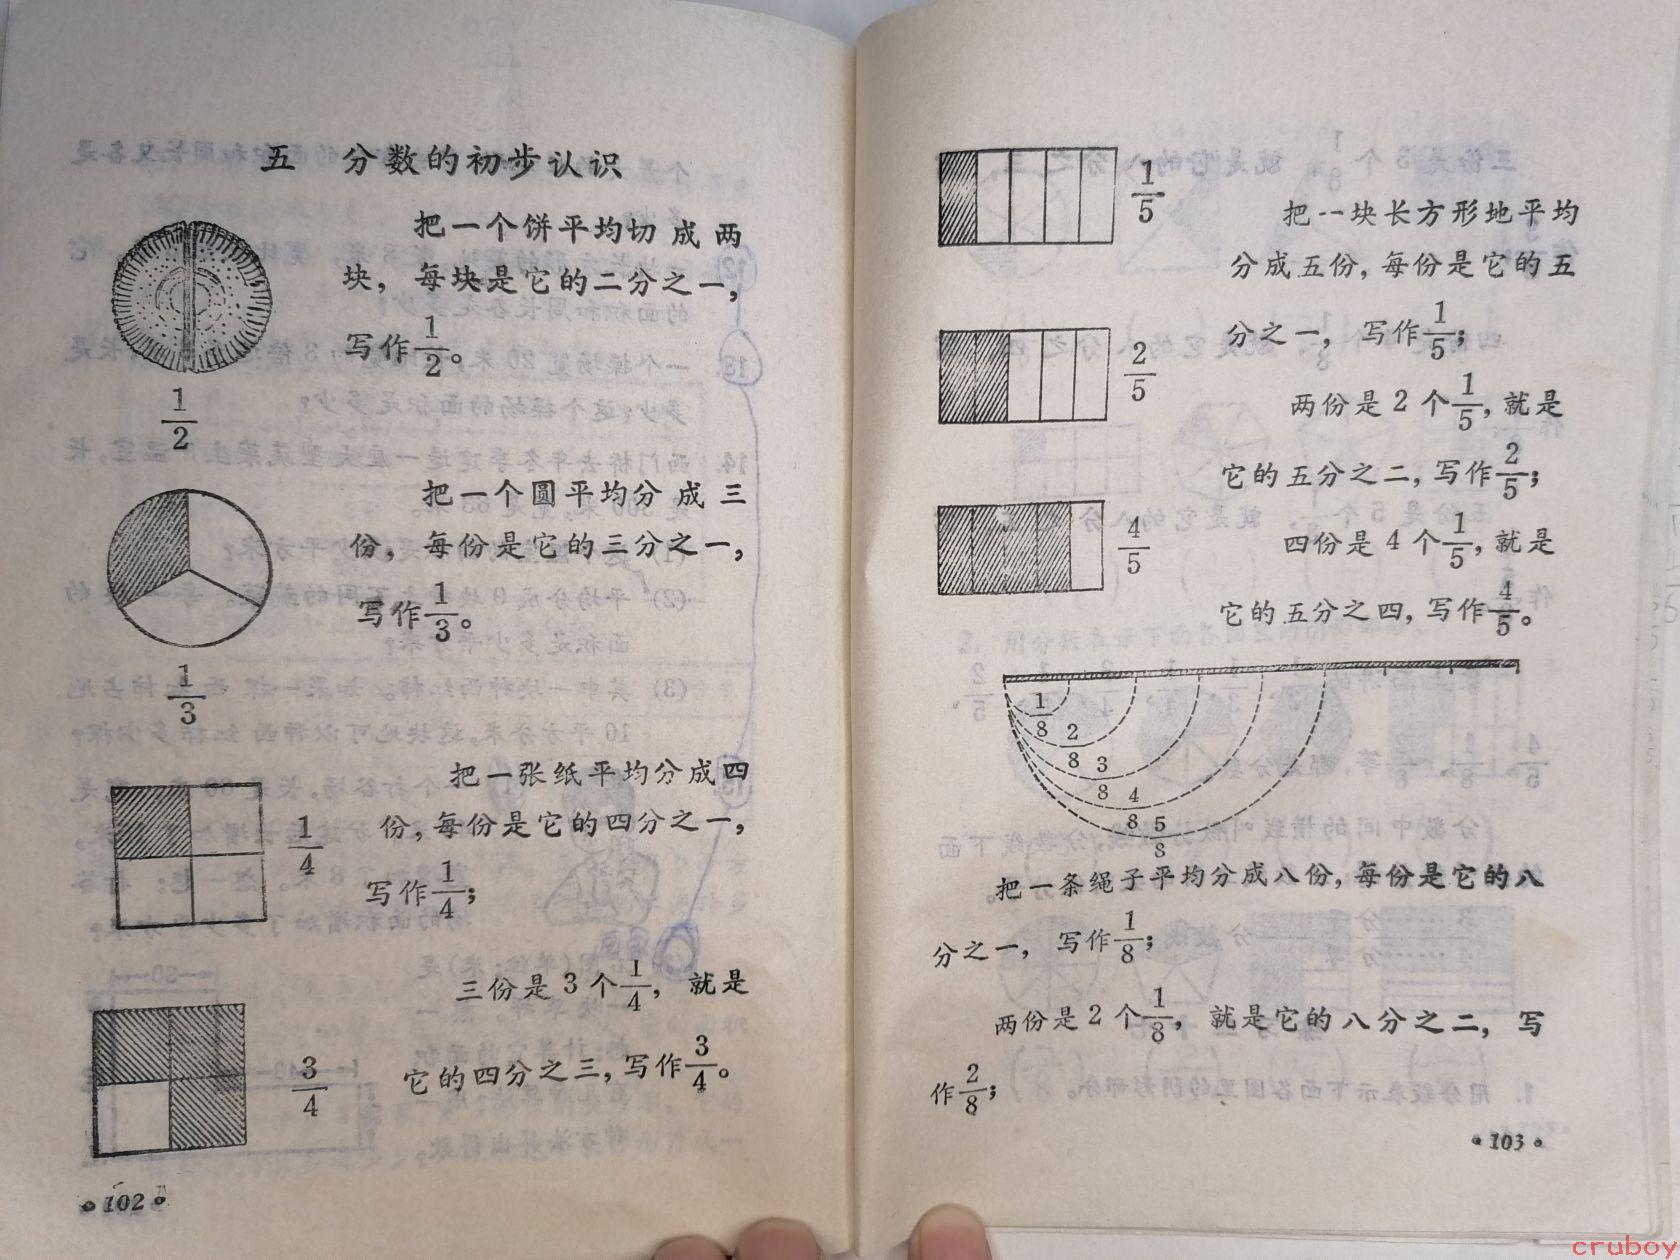 五 分数的初步认识
把一个饼平均切成两
块，每块是它的二分之一，
写作1/2。
1/2
把一个圆平均分成三
份，每份是它的三分之一，
写作1/3。
1/3
把一张纸平均分成四
份，每份是它的四分之一，
1/4
写作1/4；
三份是3个1/4，就是
它的四分之三，写作3/4。
3/4
•102•
1/5
把一块长方形地平均
分成五份，每份是它的五
分之一，写作1/5；
2/5
两份是2个1/5，就是
它的五分之二，写作2/5；
4/5
四份是4个1/5，就是
它的五分之四，写作4/5。
1/8
2/8
3/8
4/8
5/8
把一条绳子平均分成八份，每份是它的八
分之一，写作1/8；
两份是2个1/8，就是它的八分之二，写
作2/8；
•103•
cruboy